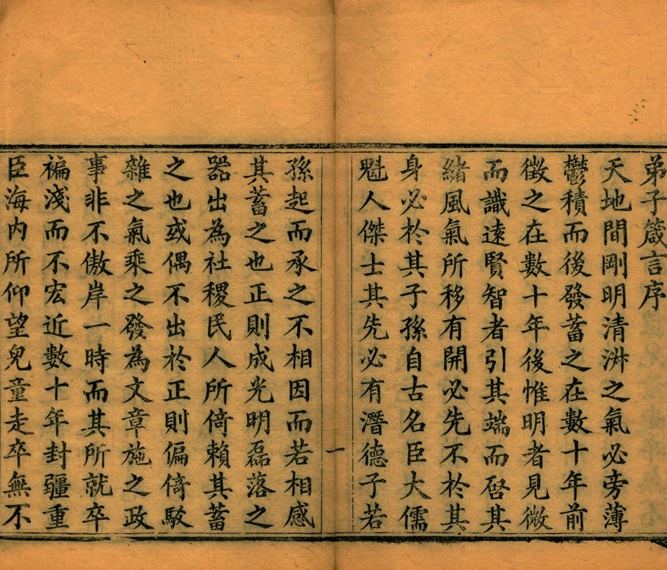 弟子箴言序
天地間剛明清淋之氣必旁薄
鬱積而後發蓄之在數十年前
徵之在數十年後惟明者見微
而識遠賢智者引其端而啓其
緒風氣所移有開必先不於其
身必於其子孫自古名臣大儒
魁人傑士其先必有潛德子若
一
孫起而承之不相因而若相感
其蓄之也正則成光明磊落之
器出為社稷民人所倚賴其蓄
之也或偶不出於正則偏倚駁
雜之氣乘之發為文章施之政
事非不傲岸一時而其所就卒
褊淺而不宏近數十年封疆重
臣海內所仰望兒童走卒無不